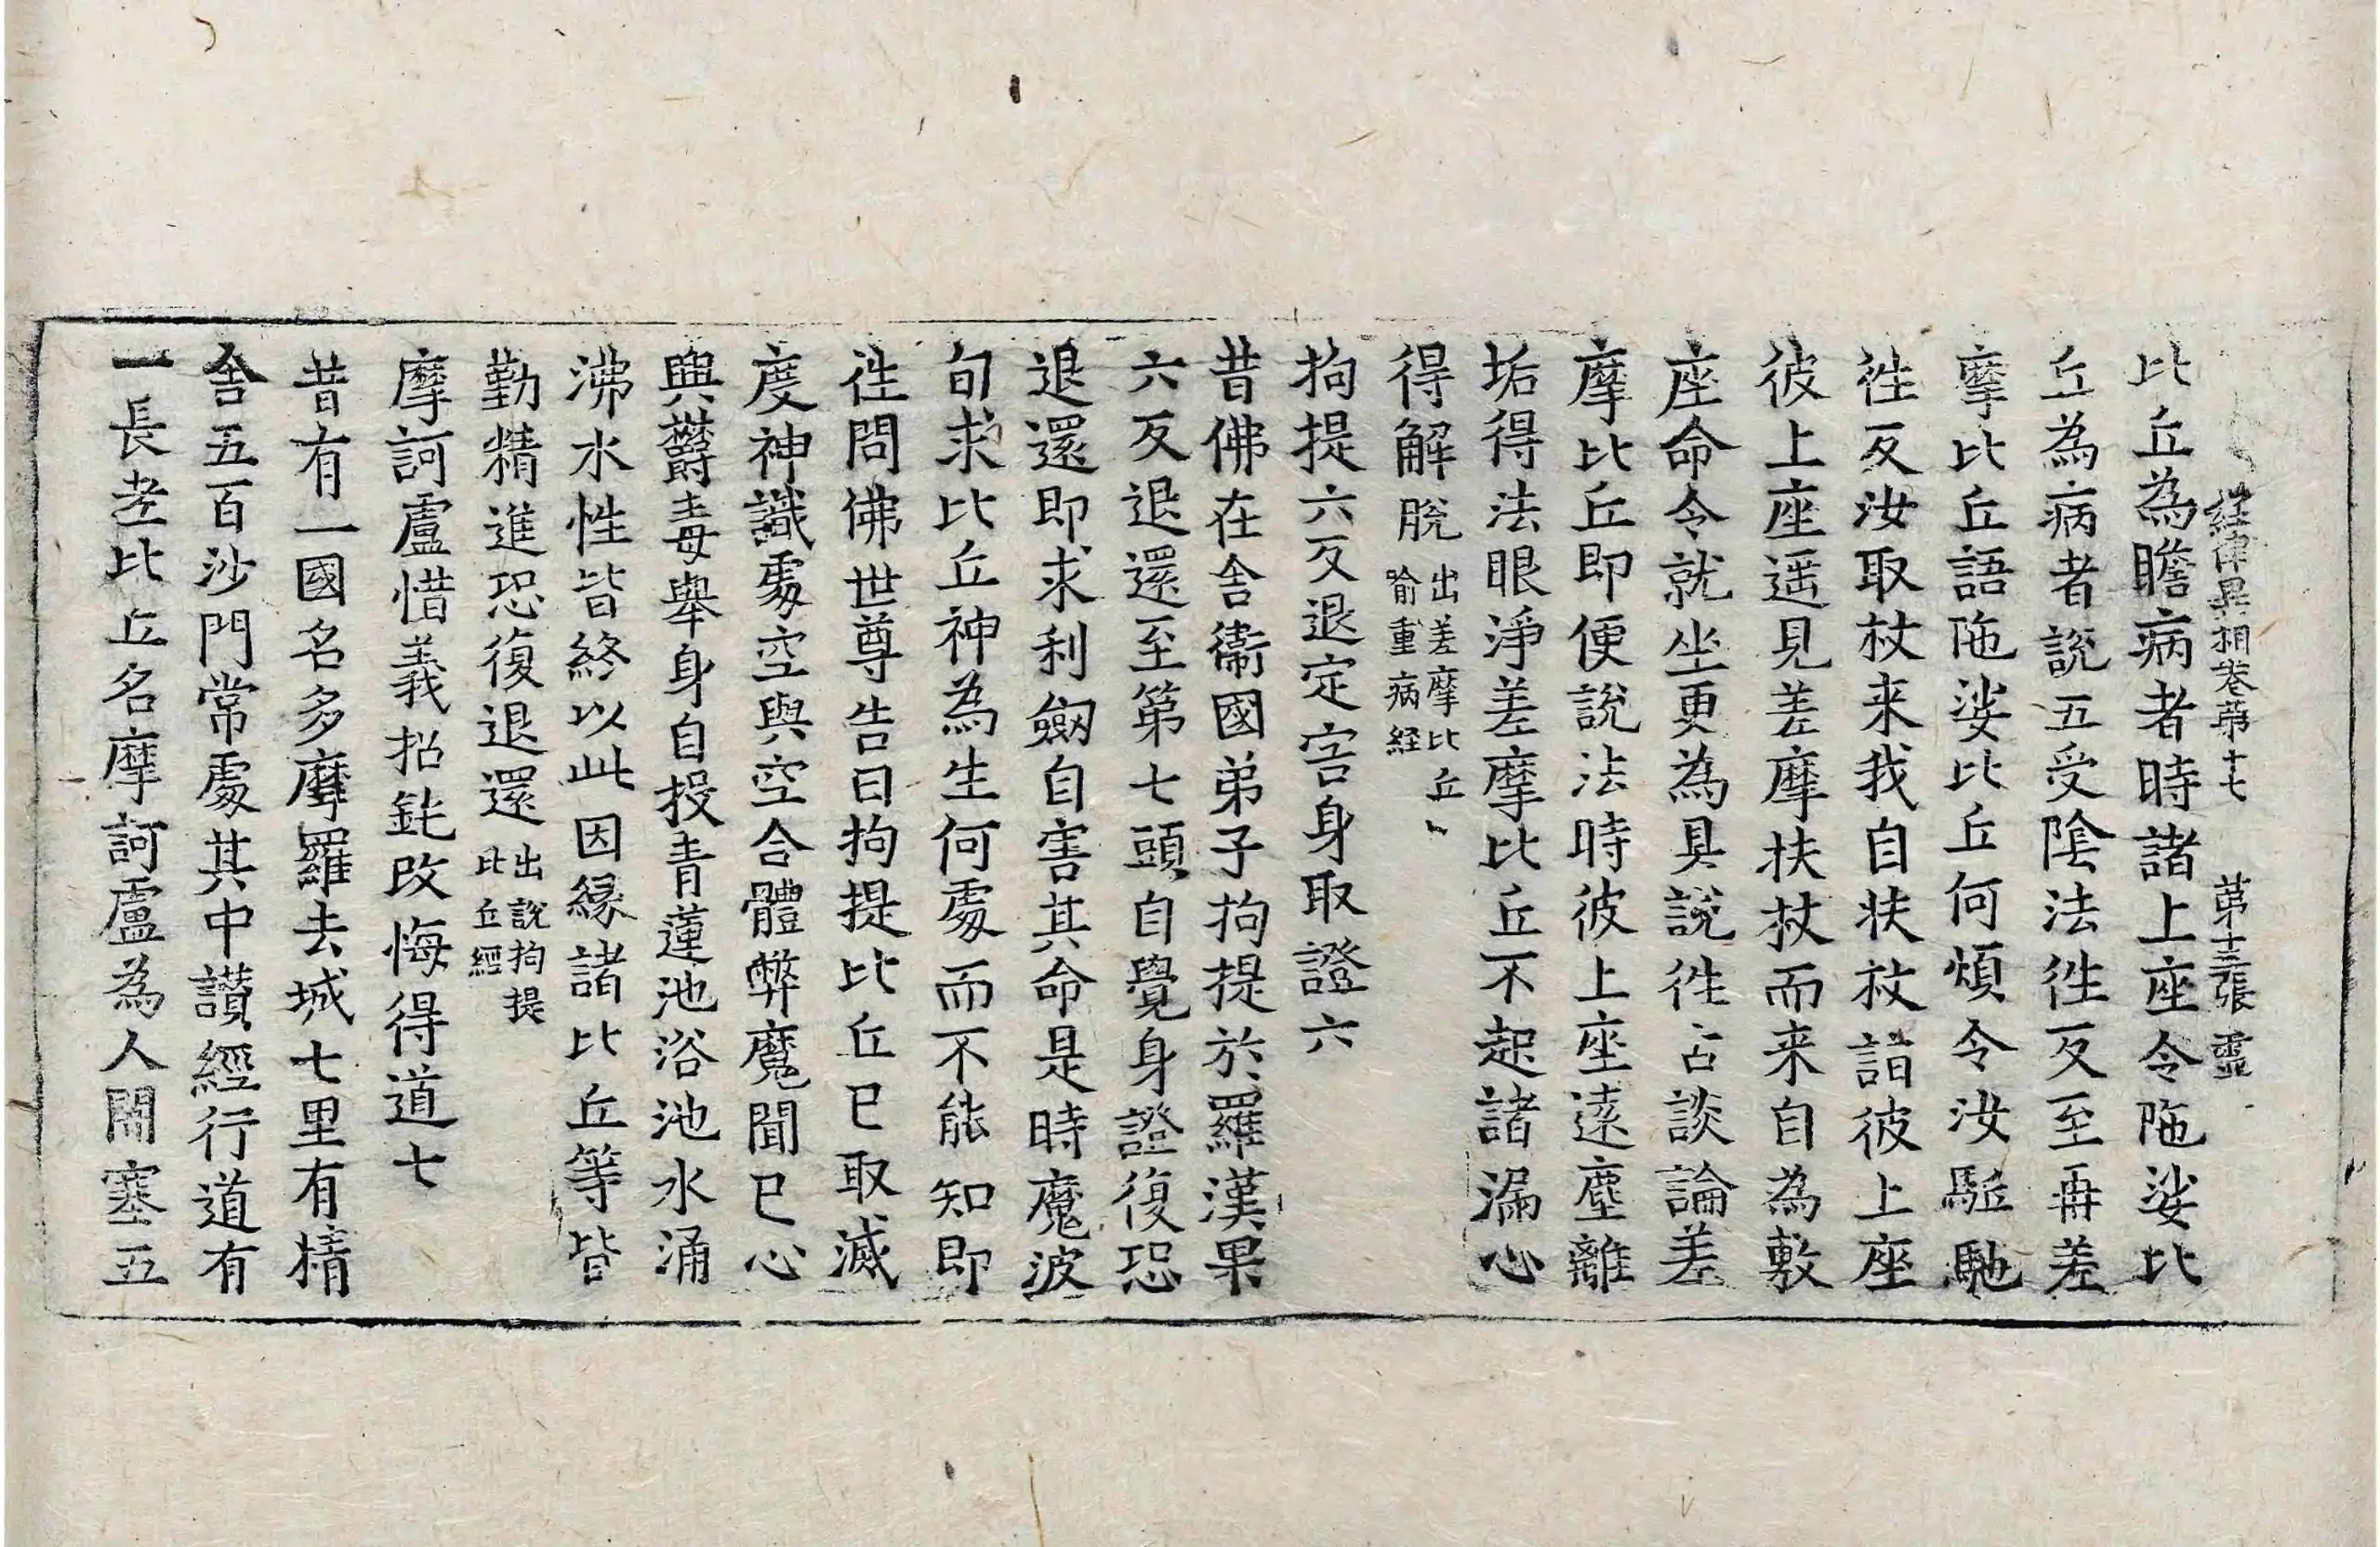 經律異相卷第十七 第十三張 靈
比丘為瞻病者時諸上座令陁娑比
丘為病者說五受陰法徃反至再差
摩比丘語陁娑比丘何煩令汝駈馳
徃反汝取杖来我自扶杖詣彼上座
彼上座遥見差摩扶杖而来自為敷
座命令就坐更為具說徃古談論差
摩比丘即便說法時彼上座遠塵離
垢得法眼淨差摩比丘不起諸漏心
得解脫出差摩比丘喻重病経
拘提六反退定害身取證六
昔佛在舍衞國弟子拘提於羅漢果
六反退還至第七頭自覺身證復恐
退還即求利劔自害其命是時魔波
旬求比丘神為生何處而不能知即
徃問佛世尊告曰拘提比丘已取滅
度神識處空與空合體弊魔聞已心
與欝毒舉身自投青蓮池浴池水涌
沸水性皆終以此因緣諸比丘等皆
勤精進恐復退還出說拘提比丘經
摩訶盧惜義招鈍改悔得道七
昔有一國名多摩羅去城七里有精
舍五百沙門常處其中讃經行道有
一長老比丘名摩訶盧為人闇塞五